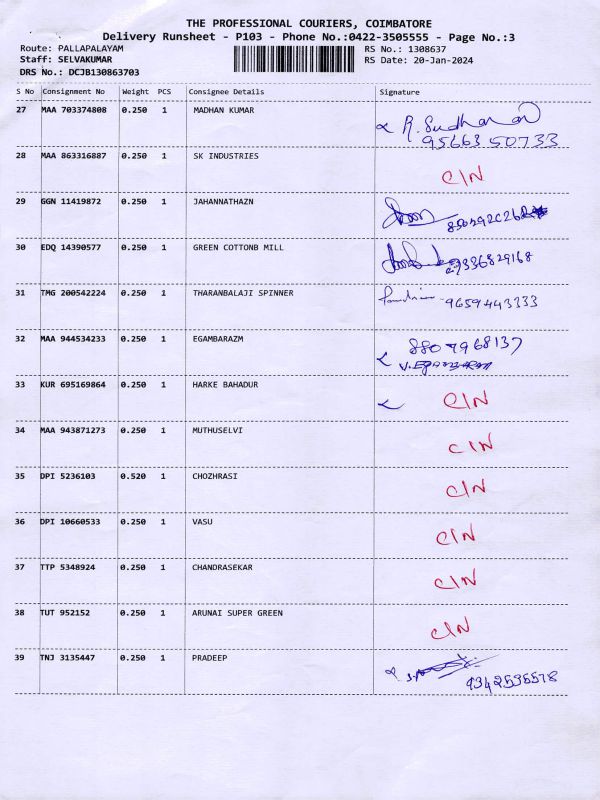 THE PROFESSIONAL COURIERS, COIMBATORE
Delivery Runsheet - P103 - Phone No.:0422-3505555 - Page No.:3
Route: PALLAPALAYAM RS No.: 1308637
Staff: SELVAKUMAR RS Date: 20-Jan-2024
DRS No.: DCJB130863703
S No Consignment No Weight PCS Consignee Details Signature
27 MAA 703374808 0.250 1 MADHAN KUMAR R. Sudharan
9566350733
28 MAA 863316887 0.250 1 SK INDUSTRIES
CIN
29 GGN 11419872 0.250 1 JAHANNATHAZN
30 EDQ 14390577 0.250 1 GREEN COTTONB MILL
9336829168
31 TMG 200542224 0.250 1 THARANBALAJI SPINNER
9659443333
32 MAA 944534233 0.250 1 EGAMBARAZM
8807968137
V.EGAMBARAM
33 KUR 695169864 0.250 1 HARKE BAHADUR
CIN
34 MAA 943871273 0.250 1 MUTHUSELVI
CIN
35 DPI 5236103 0.520 1 CHOZHRASI
CIN
36 DPI 10660533 0.250 1 VASU
CIN
37 TTP 5348924 0.250 1 CHANDRASEKAR
CIN
38 TUT 952152 0.250 1 ARUNAI SUPER GREEN
CIN
39 TNJ 3135447 0.250 1 PRADEEP
9342536578